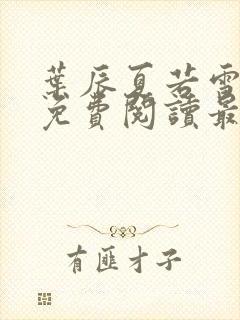 葉辰夏若雪
免費閱讀最
有匪才子